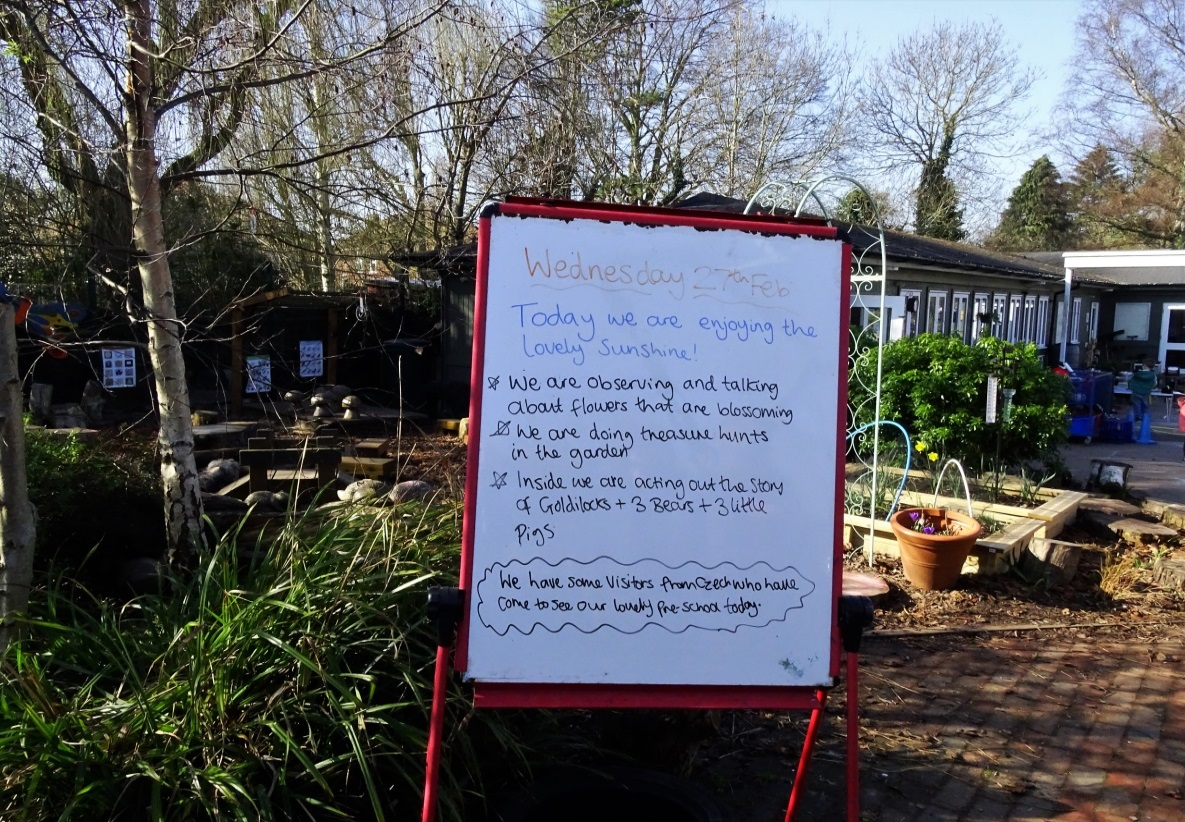 Wednesday 27th Feb
Today we are enjoying the
Lovely Sunshine!
We are observing and talking
about flowers that are blossoming
We are doing treasure hunts
in the garden
Inside we are acting out the Story
of Goldilocks + 3 Bears + 3 little
Pigs
We have some Visitors from Czech who have
Come to see our lovely pre-school today.